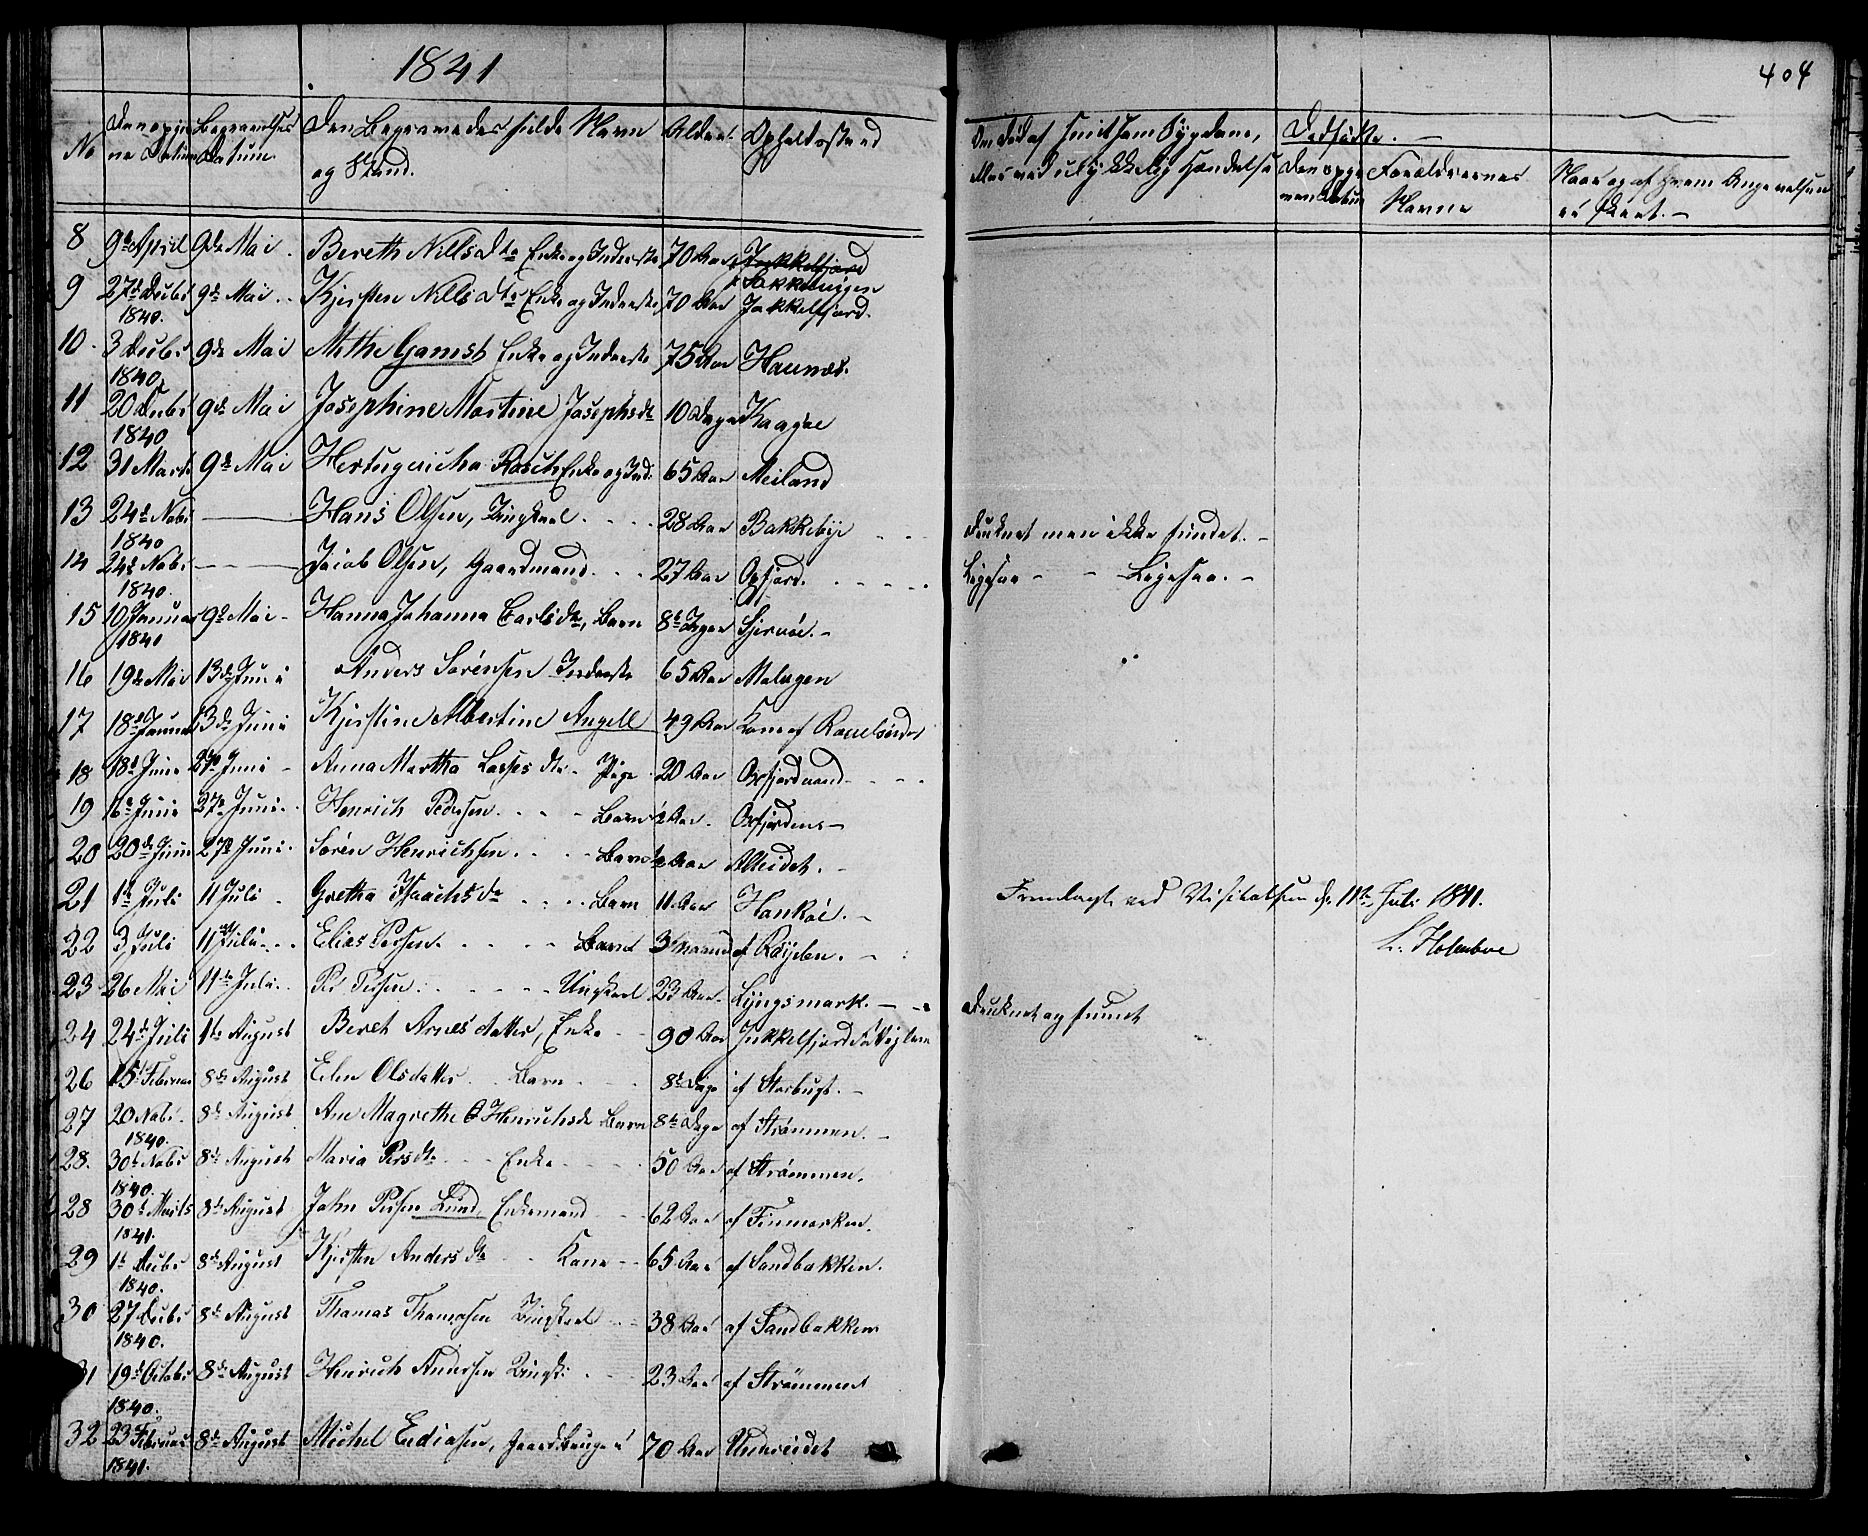 1841
404
No
Den opgivne Datum
Begravelses Datum
Den Begravedes fulde Navn og Stand.
Alder.
Opholdssted
Om Død af smitsom Sygdom, eller ved ulykkelig Hændelse
Dødfødte.
Den opgivne Datum
Forældrernes Navne
Naar og af hvem Angivelsen er skeet.
8 9de April 9de Mai. Bereth Nillsdtr Enke og Inderste 70 Aar Jøkkelfjord
9 27de Decbr 1840. 9de Mai. Kjersten Nillsdtr Enke og Inderste 70 Aar Jøkkelfjord.
10. 3 Decbr 1840. 9de Mai Methe Gamst Enke og Inderste 75 Aar Haunæs.
11 20 Decbr 1840 9de Mai Josephine Martine Josephsdtr 10 Dage Kaagøe
12 31 Marts 9de Mai Rasch Enke og Ind: 65 Aar Meiland
13 24de Novbr 1840 Hans Olsen, Ungkarl 28 Aar Bakkebye Druknet men ikke fundet.
14 24de Novbr 1840. Jacob Olsen, Gaardmand 27 Aar Oxfjord. Ligesaa Ligesaa.
15 10 Januar 1841 9de Mai Hanna Johanna Carlsdtr, Barn 8te Dage Skjervøe.
16 19de Mai 13de Juni Anders Sørensen Inderste 65 Aar Malvgen
17 18de Januar 13de Juni Kjerstine Albertine Angell 49 Aar Kone af
18 18de Juni 27de Juni Anna Martha Larsesdtr Pige 20 Aar Oxfjordvand
19 16de Juni 27de Juni. Henrich Pedersen Barn ½ Aar. Oxfjorden
20 20de Juni 27de Juni. Søren Henrichsen Barn ½ Aar Alteidet.
21 1te Juli 11 Juli Grethe Isaachsdtr Barn 11 Aar Haukøe. Fremlagt ved Visitatsen d. 11te Juli 1841.
22 3 Juli 11te Juli Elias Persen. Barn 3 Maaned af Røyelen. L. Holmboe
23 26 Mai 11te Juli. Per Persen Ungkarl 23 Aar. Lyngsmark. Druknet og fundet
24 24de Juli 1te August Beret Arnesdatter, Enke 90 Aar Jøkkelfjord Fattiglem
26 15de Februar 8de August Elen Olsdatter Barn 8te Dage af Storbugt.
27 20 Novbr. 1840. 8de August Ane Magrethe Henrichsdtr Barn 8te Dage af Strømmen.
28. 30te Novbr 1840. 8de August Maria Persdtr Enke 50 Aar af Strømmen.
28 30te Marts 1841. 8de August John Persen Lund, Enkemand 62 Aar af Finmarken.
29 1te Decbr 1840. 8de August Kjersten Andersdtr Kone 65 Aar af Sandbakken.
30 27 Decbr 1840. 8de August Thomas Thomasen Ungkarl 38 Aar af Sandbakken
31 19de Octobr 1840. 8de August Henrich Andersen Ungk: 23 Aar af Strømmen
32 23 Februar 1841. 8de August Michel Endresen, Gaardbruger 70 Aar Undereidet